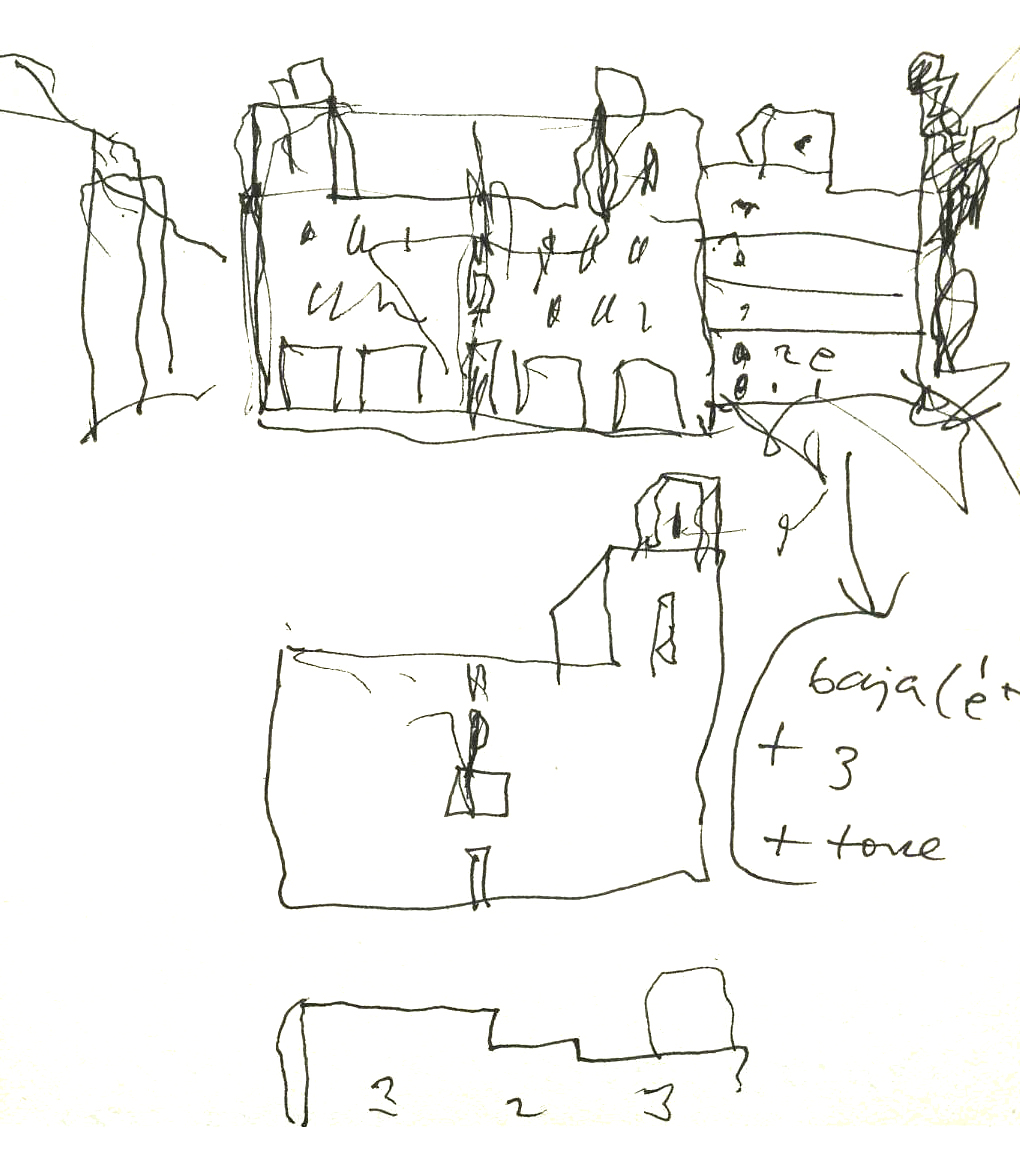 baja (é
+ 3
+ torre
3 2 3